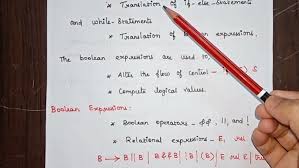 * Translation of if-else-statements
and while-statements
* Translation of Boolean expressions,
The boolean expressions are used to,
* Alter the flow of control - if (E) S
* Compute logical values.
Boolean Expressions:
* Boolean operators - &&, ||, and !
* Relational expressions - E1 rel
B → B || B | B && B | !B | (B) | E rel E | true